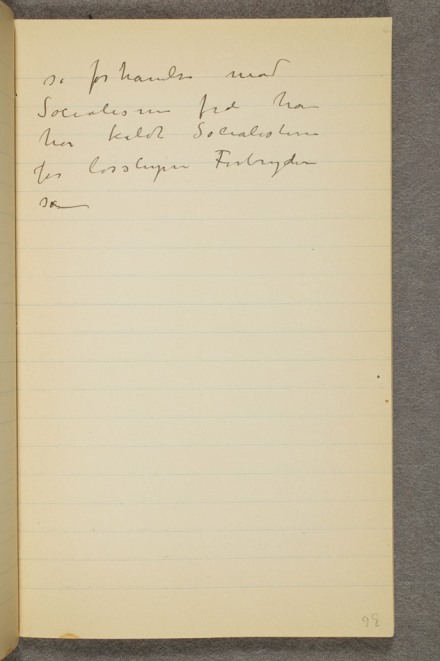 se forhandlr mod
Socialismen ford han
har kaldt Socialisterne
for losslupne Forbrydere
sa
36